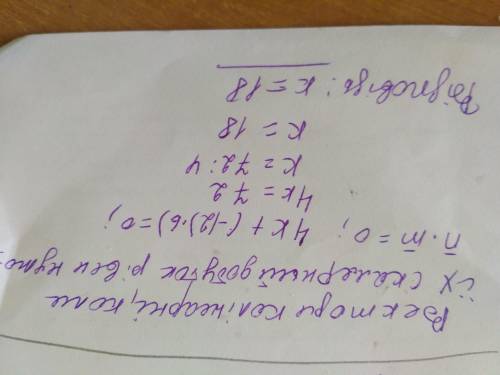 Вектори колінеарні, коли
їх скалярний добуток рівен нулю.
n̄·m̄=0; 4k+(-12)·6)=0;
4k=72
k=72:4
k=18
Відповідь: k=18